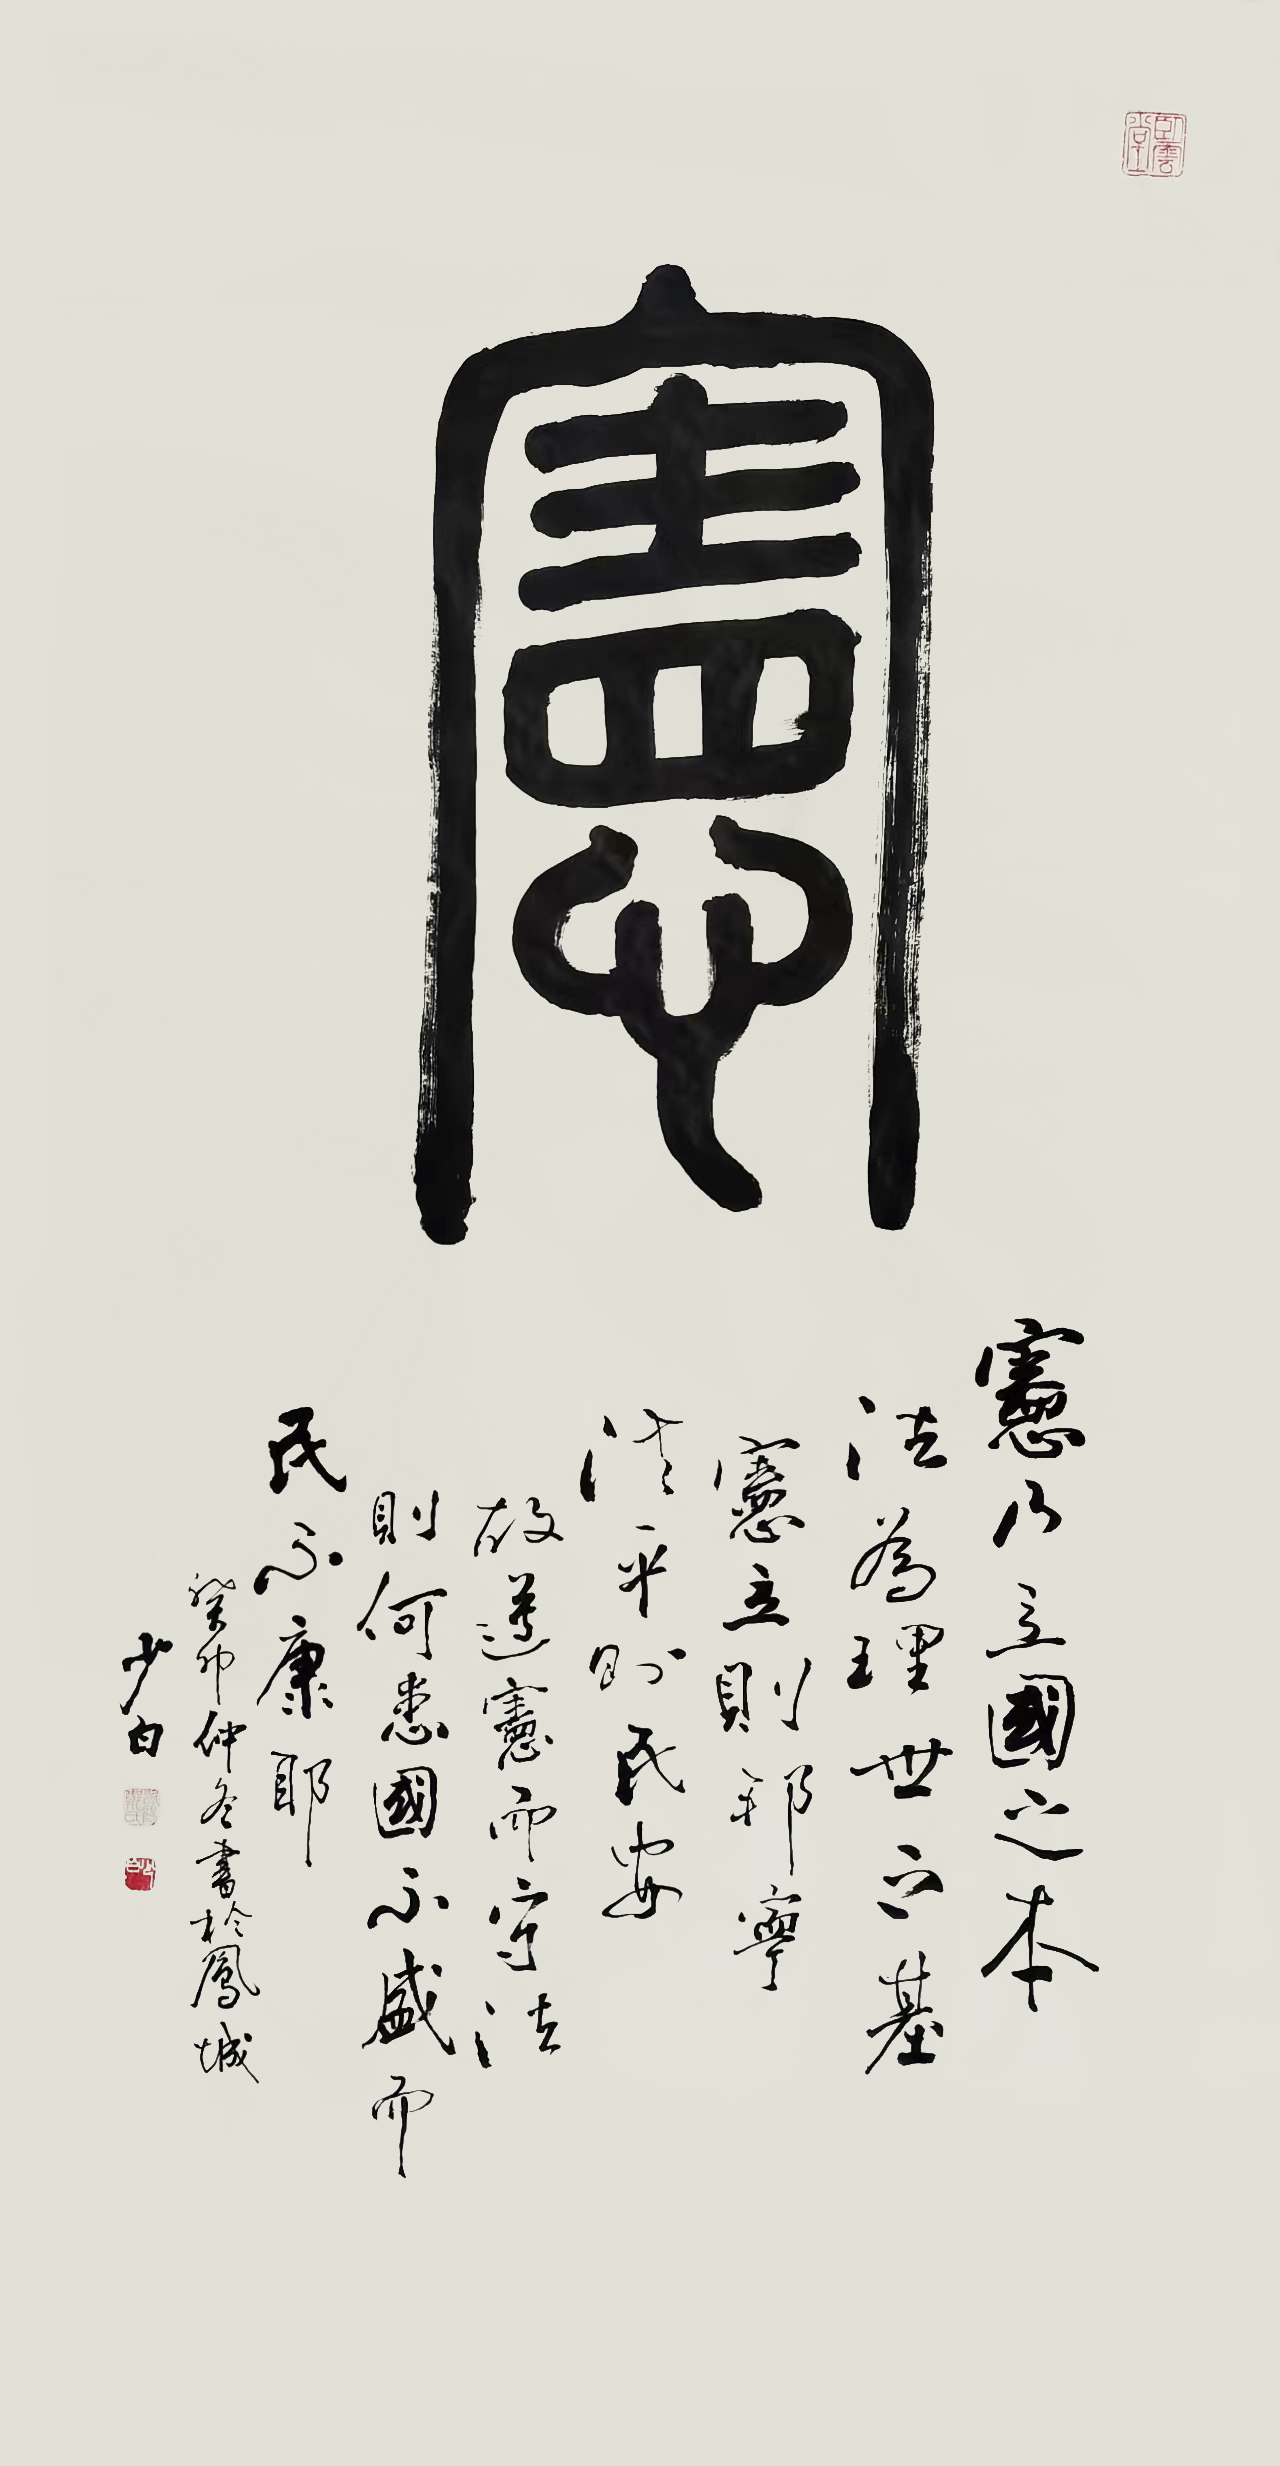 臥雲堂
憲
憲乃立國之本
法為理世之基
憲立則邦寧
法平則民安
故遵憲而守法
則何患國不盛而
民不康耶
癸卯仲冬書於鳳城
少白
少白